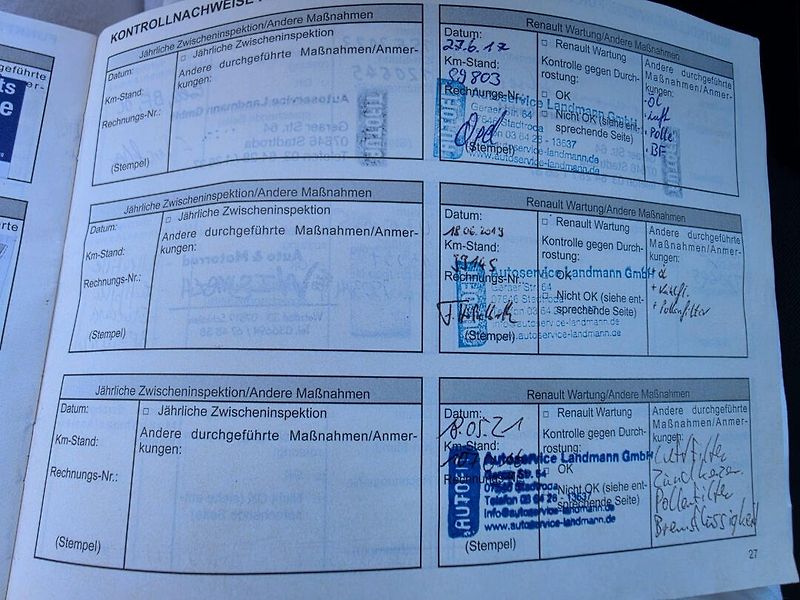 KONTROLLNACHWEISE
Jährliche Zwischeninspektion/Andere Maßnahmen
Datum:
□ Jährliche Zwischeninspektion
Andere durchgeführte Maßnahmen/Anmer-
kungen:
Km-Stand:
Rechnungs-Nr.:
(Stempel)
Renault Wartung/Andere Maßnahmen
Datum:
27.6.17
Km-Stand:
89803
Rechnungs-Nr.
□ Renault Wartung
Kontrolle gegen Durch-
rostung:
□ OK
□ Nicht OK (siehe ent-
sprechende Seite)
Andere durchgeführte
Maßnahmen/Anmer-
kungen:
· Öl
· Luft
· Polle
· BF
AUTOFIT
Autoservice Landmann GmbH
Geraer Str. 64
07646 Stadtroda
Telefon 03 64 28 - 13637
www.autoservice-landmann.de
(Stempel)
Jährliche Zwischeninspektion/Andere Maßnahmen
Datum:
□ Jährliche Zwischeninspektion
Andere durchgeführte Maßnahmen/Anmer-
kungen:
Km-Stand:
Rechnungs-Nr.:
(Stempel)
Renault Wartung/Andere Maßnahmen
Datum:
18.06.2019
Km-Stand:
Rechnungs-Nr.:
□ Renault Wartung
Kontrolle gegen Durch-
rostung:
□ OK
□ Nicht OK (siehe ent-
sprechende Seite)
Andere durchgeführte
Maßnahmen/Anmer-
kungen:
+ Luftfi.
+ Pollenfilter
AUTOFIT
Autoservice Landmann GmbH
Geraer Str. 64
07646 Stadtroda
info@autoservice-landmann.de
www.autoservice-landmann.de
(Stempel)
Jährliche Zwischeninspektion/Andere Maßnahmen
Datum:
□ Jährliche Zwischeninspektion
Andere durchgeführte Maßnahmen/Anmer-
kungen:
Km-Stand:
Rechnungs-Nr.:
(Stempel)
Renault Wartung/Andere Maßnahmen
Datum:
18.05.21
Km-Stand:
□ Renault Wartung
Kontrolle gegen Durch-
rostung:
□ OK
□ Nicht OK (siehe ent-
sprechende Seite)
Andere durchgeführte
Maßnahmen/Anmer-
kungen:
Luftfilter
Zündkerzen
Pollenfilter
Bremsflüssigkeit
AUTOFIT
Autoservice Landmann GmbH
Geraer Str. 64
07646 Stadtroda
Telefon 03 64 28 - 13637
info@autoservice-landmann.de
www.autoservice-landmann.de
(Stempel)
27